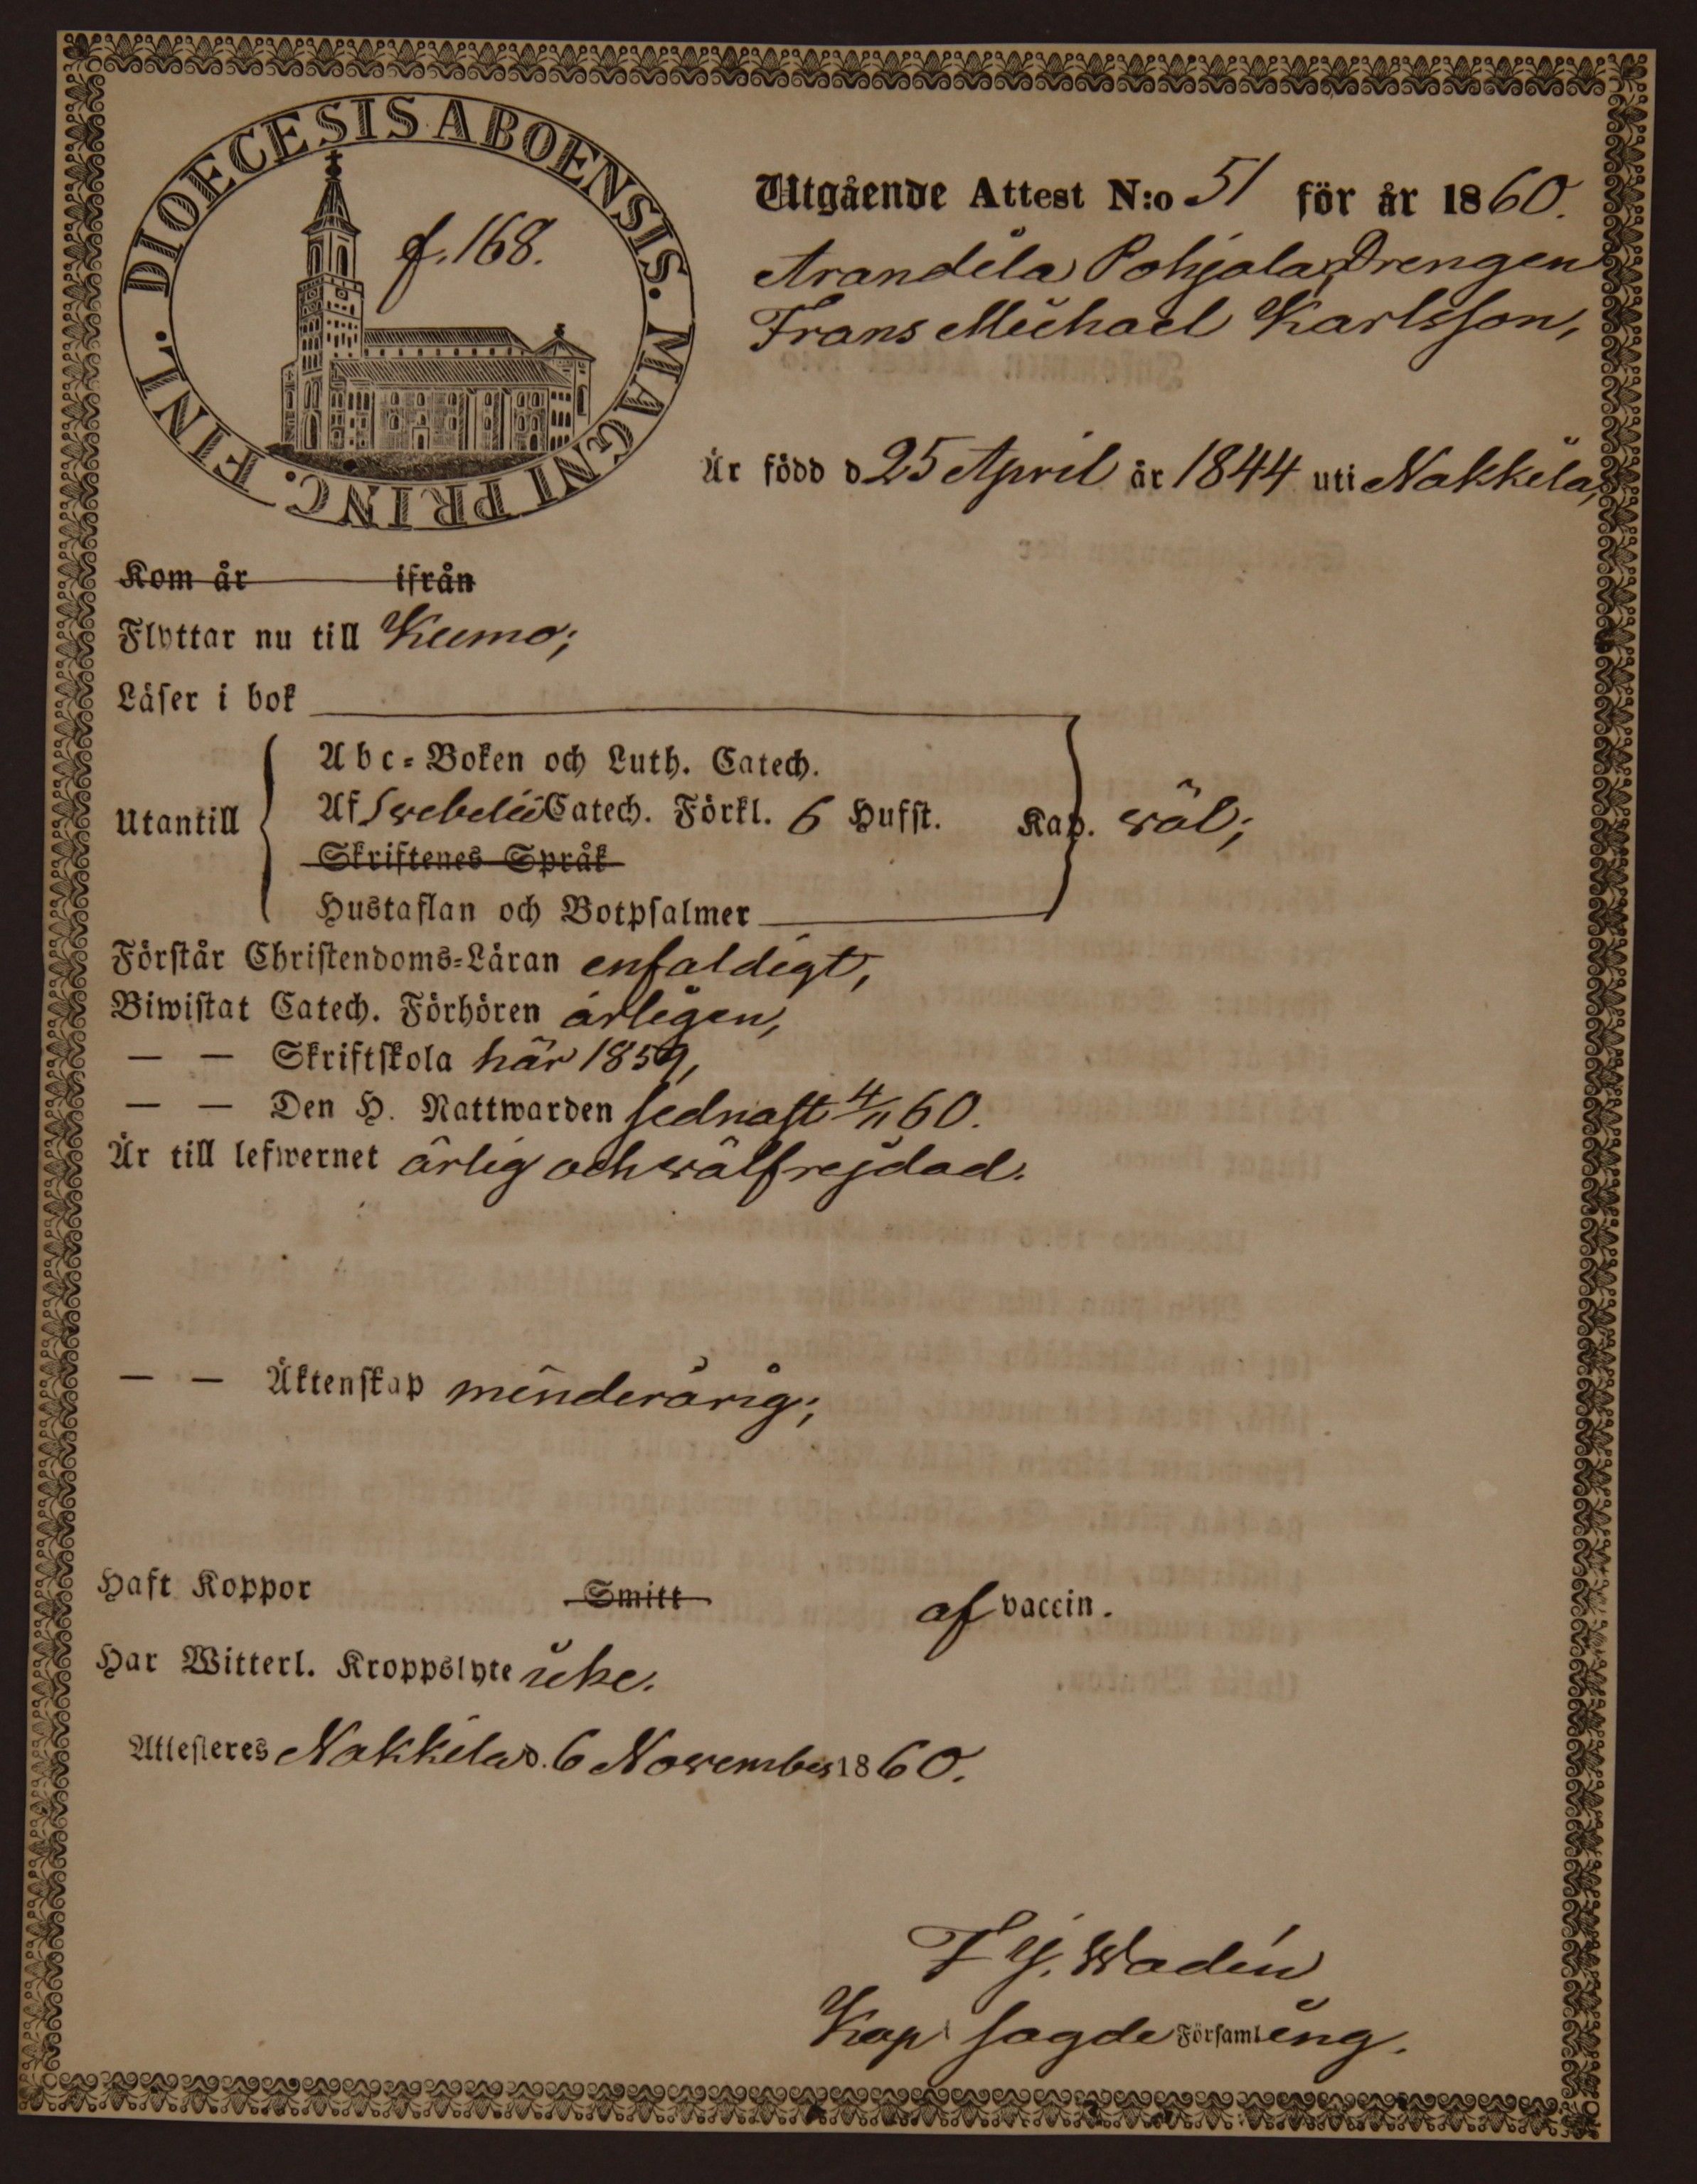 DIOECESIS ABOENSIS. MAGNI PRINC. FINL.
f. 168.
Utgående Attest N:o 51 för år 1860.
Arandila Pohjala, Drengen
Frans Michael Karlsson,
Är född d 25 April år 1844 uti Nakkila,
Kom år ifrån
Flyttar nu till Kumo;
Läser i bok
Utantill
Abc-Boken och Luth. Catech.
Af Swebelii Catech. Förkl. 6 Hufst. Kap. wäl;
Skriftenes Språk
Hustaflan och Botpsalmer
Förstår Christendoms-Läran enfaldigt,
Biwistat Catech. Förhören årligen,
— — Skriftskola här 1859,
— — Den H. Nattwarden sednast 4/11 60.
Är till lefwernet ärlig och wälfrejdad.
— — Äktenskap minderårig;
Haft Koppor Smitt af vaccin.
Har Witterl. Kroppslyte icke.
Attesteres Nakkila d. 6 November 1860.
F J. Wadén
Kapl i sagde Församling.